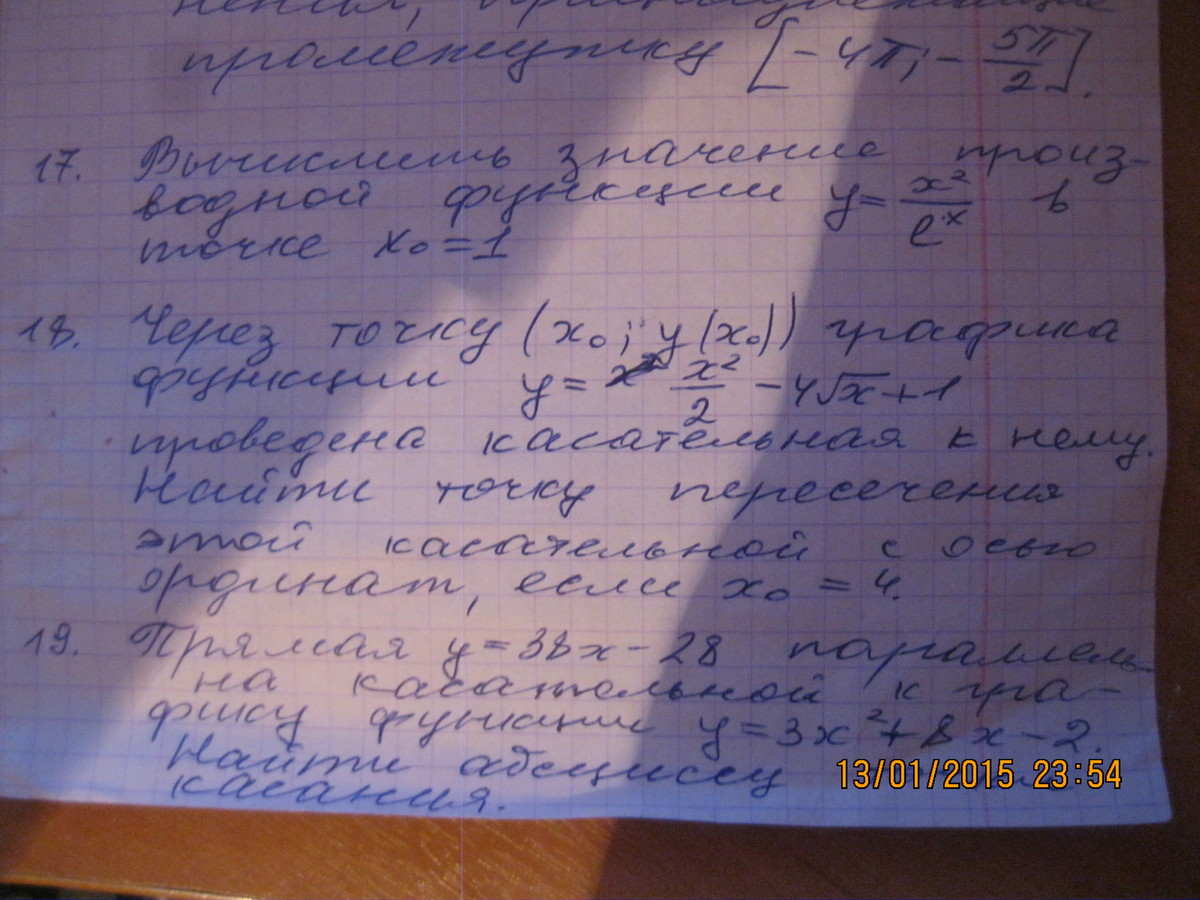 промежутку [-4π; -5π/2].
17. Вычислить значение произ-
водной функции y = x²/eˣ в
точке x₀ = 1
18. Через точку (x₀; y(x₀)) графика
функции y = x²/2 - 4√x + 1
проведена касательная к нему.
Найти точку пересечения
этой касательной с осью
ординат, если x₀ = 4.
19. Прямая y = 38x - 28 параллель-
на касательной к гра-
фику функции y = 3x² + 8x - 2.
Найти абсциссу
касания.
13/01/2015 23:54